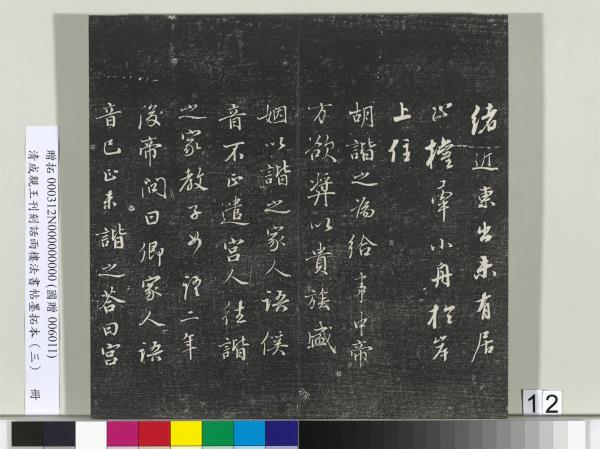 緒近東出未有居
止權牽小舟於岸
上住
胡諧之為給事中帝
方欲獎以貴族盛
姻以諧之家人語傒
音不正遣宮人往諧
之家教子女語二年
後帝問曰卿家人語
音已正未諧之答曰宮
贈拓 000312N000000000 (國贈 006011)
清成親王刊刻詒晉樓法書帖墨拓本（三） 冊
12